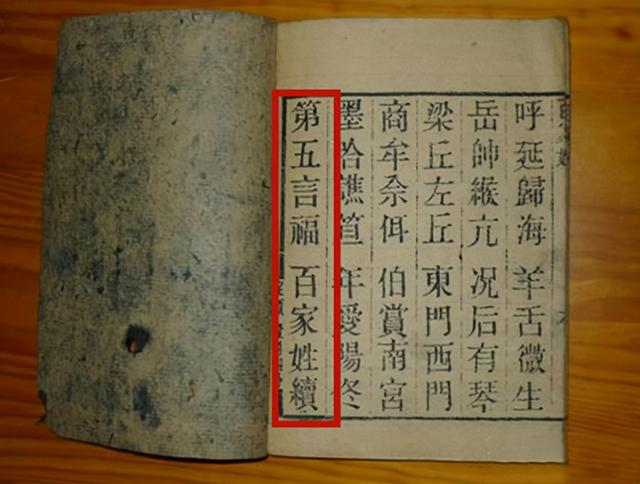 呼延歸海 羊舌微生
岳帥緱亢 况后有琴
梁丘左丘 東門西門
商牟佘佴 伯賞南宮
墨哈譙笪 年愛陽佟
第五言福 百家姓續